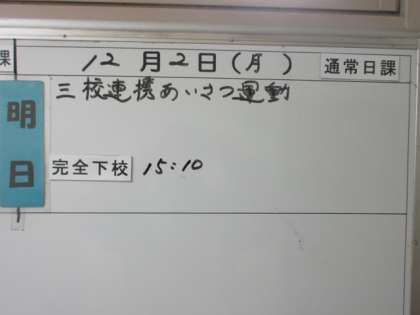 課 12月2日(月) 通常日課
明日
三校連携あいさつ運動
完全下校 15:10